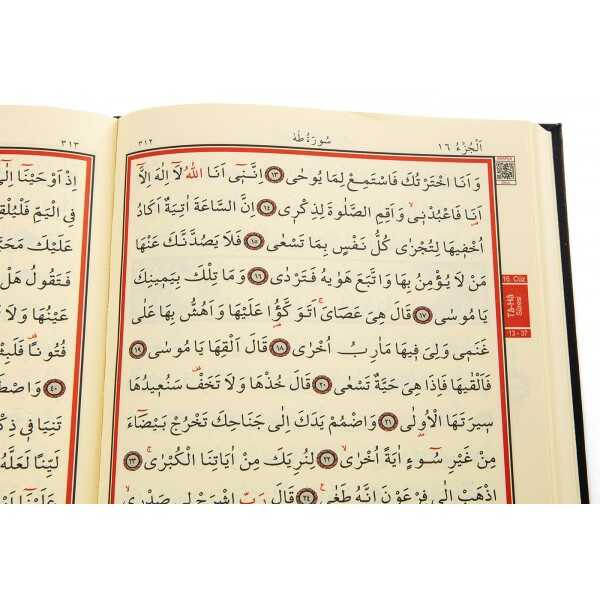 اَلْجُزْءُ ١٦ سُورَةُ طٰهٰ ٣١٢
وَاَنَا اخْتَرْتُكَ فَاسْتَمِعْ لِمَا يُوحٰى ﴿١٣﴾ اِنَّنٖٓى اَنَا اللّٰهُ لَٓا اِلٰهَ اِلَّٓا
اَنَا۬ فَاعْبُدْنٖى وَاَقِمِ الصَّلٰوةَ لِذِكْرٖى ﴿١٤﴾ اِنَّ السَّاعَةَ اٰتِيَةٌ اَكَادُ
اُخْفٖيهَا لِتُجْزٰى كُلُّ نَفْسٍ بِمَا تَسْعٰى ﴿١٥﴾ فَلَا يَصُدَّنَّكَ عَنْهَا
مَنْ لَا يُؤْمِنُ بِهَا وَاتَّبَعَ هَوٰيهُ فَتَرْدٰى ﴿١٦﴾ وَمَا تِلْكَ بِيَمٖينِكَ
يَا مُوسٰى ﴿١٧﴾ قَالَ هِىَ عَصَاىَۚ اَتَوَكَّؤُ۬ا عَلَيْهَا وَاَهُشُّ بِهَا عَلٰى
غَنَمٖى وَلِىَ فٖيهَا مَاٰرِبُ اُخْرٰى ﴿١٨﴾ قَالَ اَلْقِهَا يَا مُوسٰى ﴿١٩﴾
فَاَلْقٰيهَا فَاِذَا هِىَ حَيَّةٌ تَسْعٰى ﴿٢٠﴾ قَالَ خُذْهَا وَلَا تَخَفْ۠ سَنُعٖيدُهَا
سٖيرَتَهَا الْاُو۫لٰى ﴿٢١﴾ وَاضْمُمْ يَدَكَ اِلٰى جَنَاحِكَ تَخْرُجْ بَيْضَٓاءَ
مِنْ غَيْرِ سُٓوءٍ اٰيَةً اُخْرٰىۙ ﴿٢٢﴾ لِنُرِيَكَ مِنْ اٰيَاتِنَا الْكُبْرٰىۚ ﴿٢٣﴾
اِذْهَبْ اِلٰى فِرْعَوْنَ اِنَّهُ طَغٰى۟ ﴿٢٤﴾ قَالَ رَبِّ اشْرَحْ لٖى صَدْرٖىۙ
16. Cüz
Tâ-Hâ
Sûresi
13 - 37
٣١٣
اِذْ اَوْحَيْنَٓا
فِى الْيَمِّ فَلْيُلْقِهِ
عَلَيْكَ
فَتَقُولُ هَلْ
عَيْنُهَا وَلَا
فُتُونًا۠ فَلَبِثْتَ
﴿٤٠﴾
تَنِيَا فٖى
لَيِّنًا لَعَلَّهُ
عَلَيْنَٓا